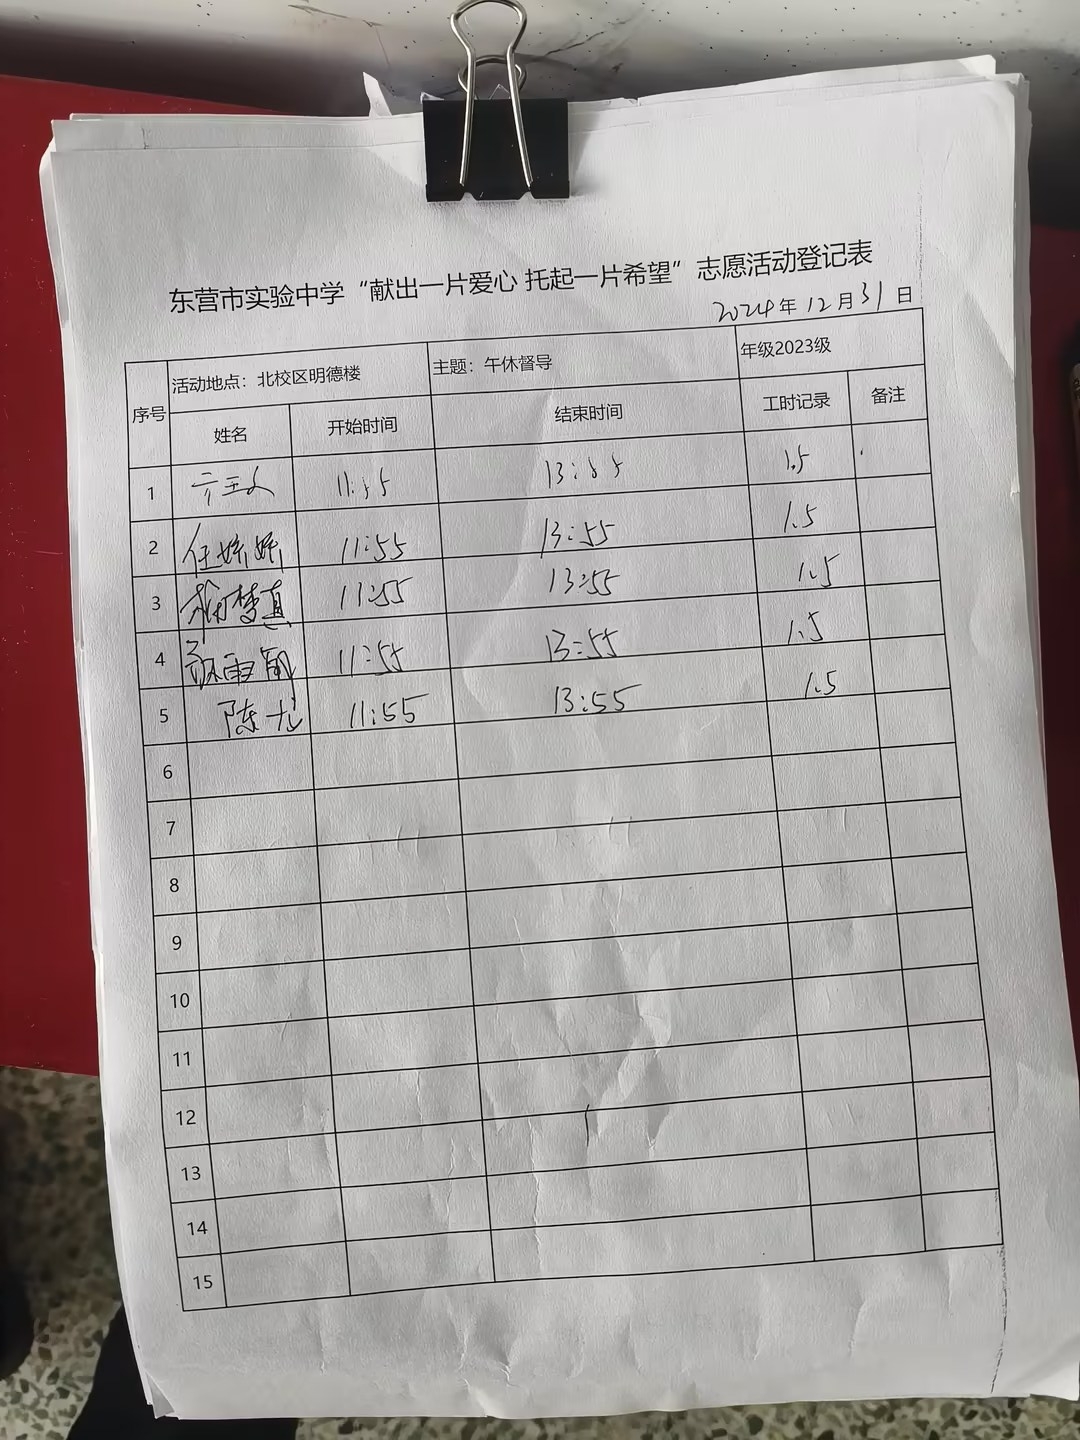 东营市实验中学“献出一片爱心 托起一片希望”志愿活动登记表
2024年12月31日
序号 活动地点：北校区明德楼 主题：午休督导 年级2023级
姓名 开始时间 结束时间 工时记录 备注
1 11:55 13:55 1.5
2 任娇娇 11:55 13:55 1.5
3 梦真 11:55 13:55 1.5
4 雨 11:55 13:55 1.5
5 陈龙 11:55 13:55 1.5
6
7
8
9
10
11
12
13
14
15